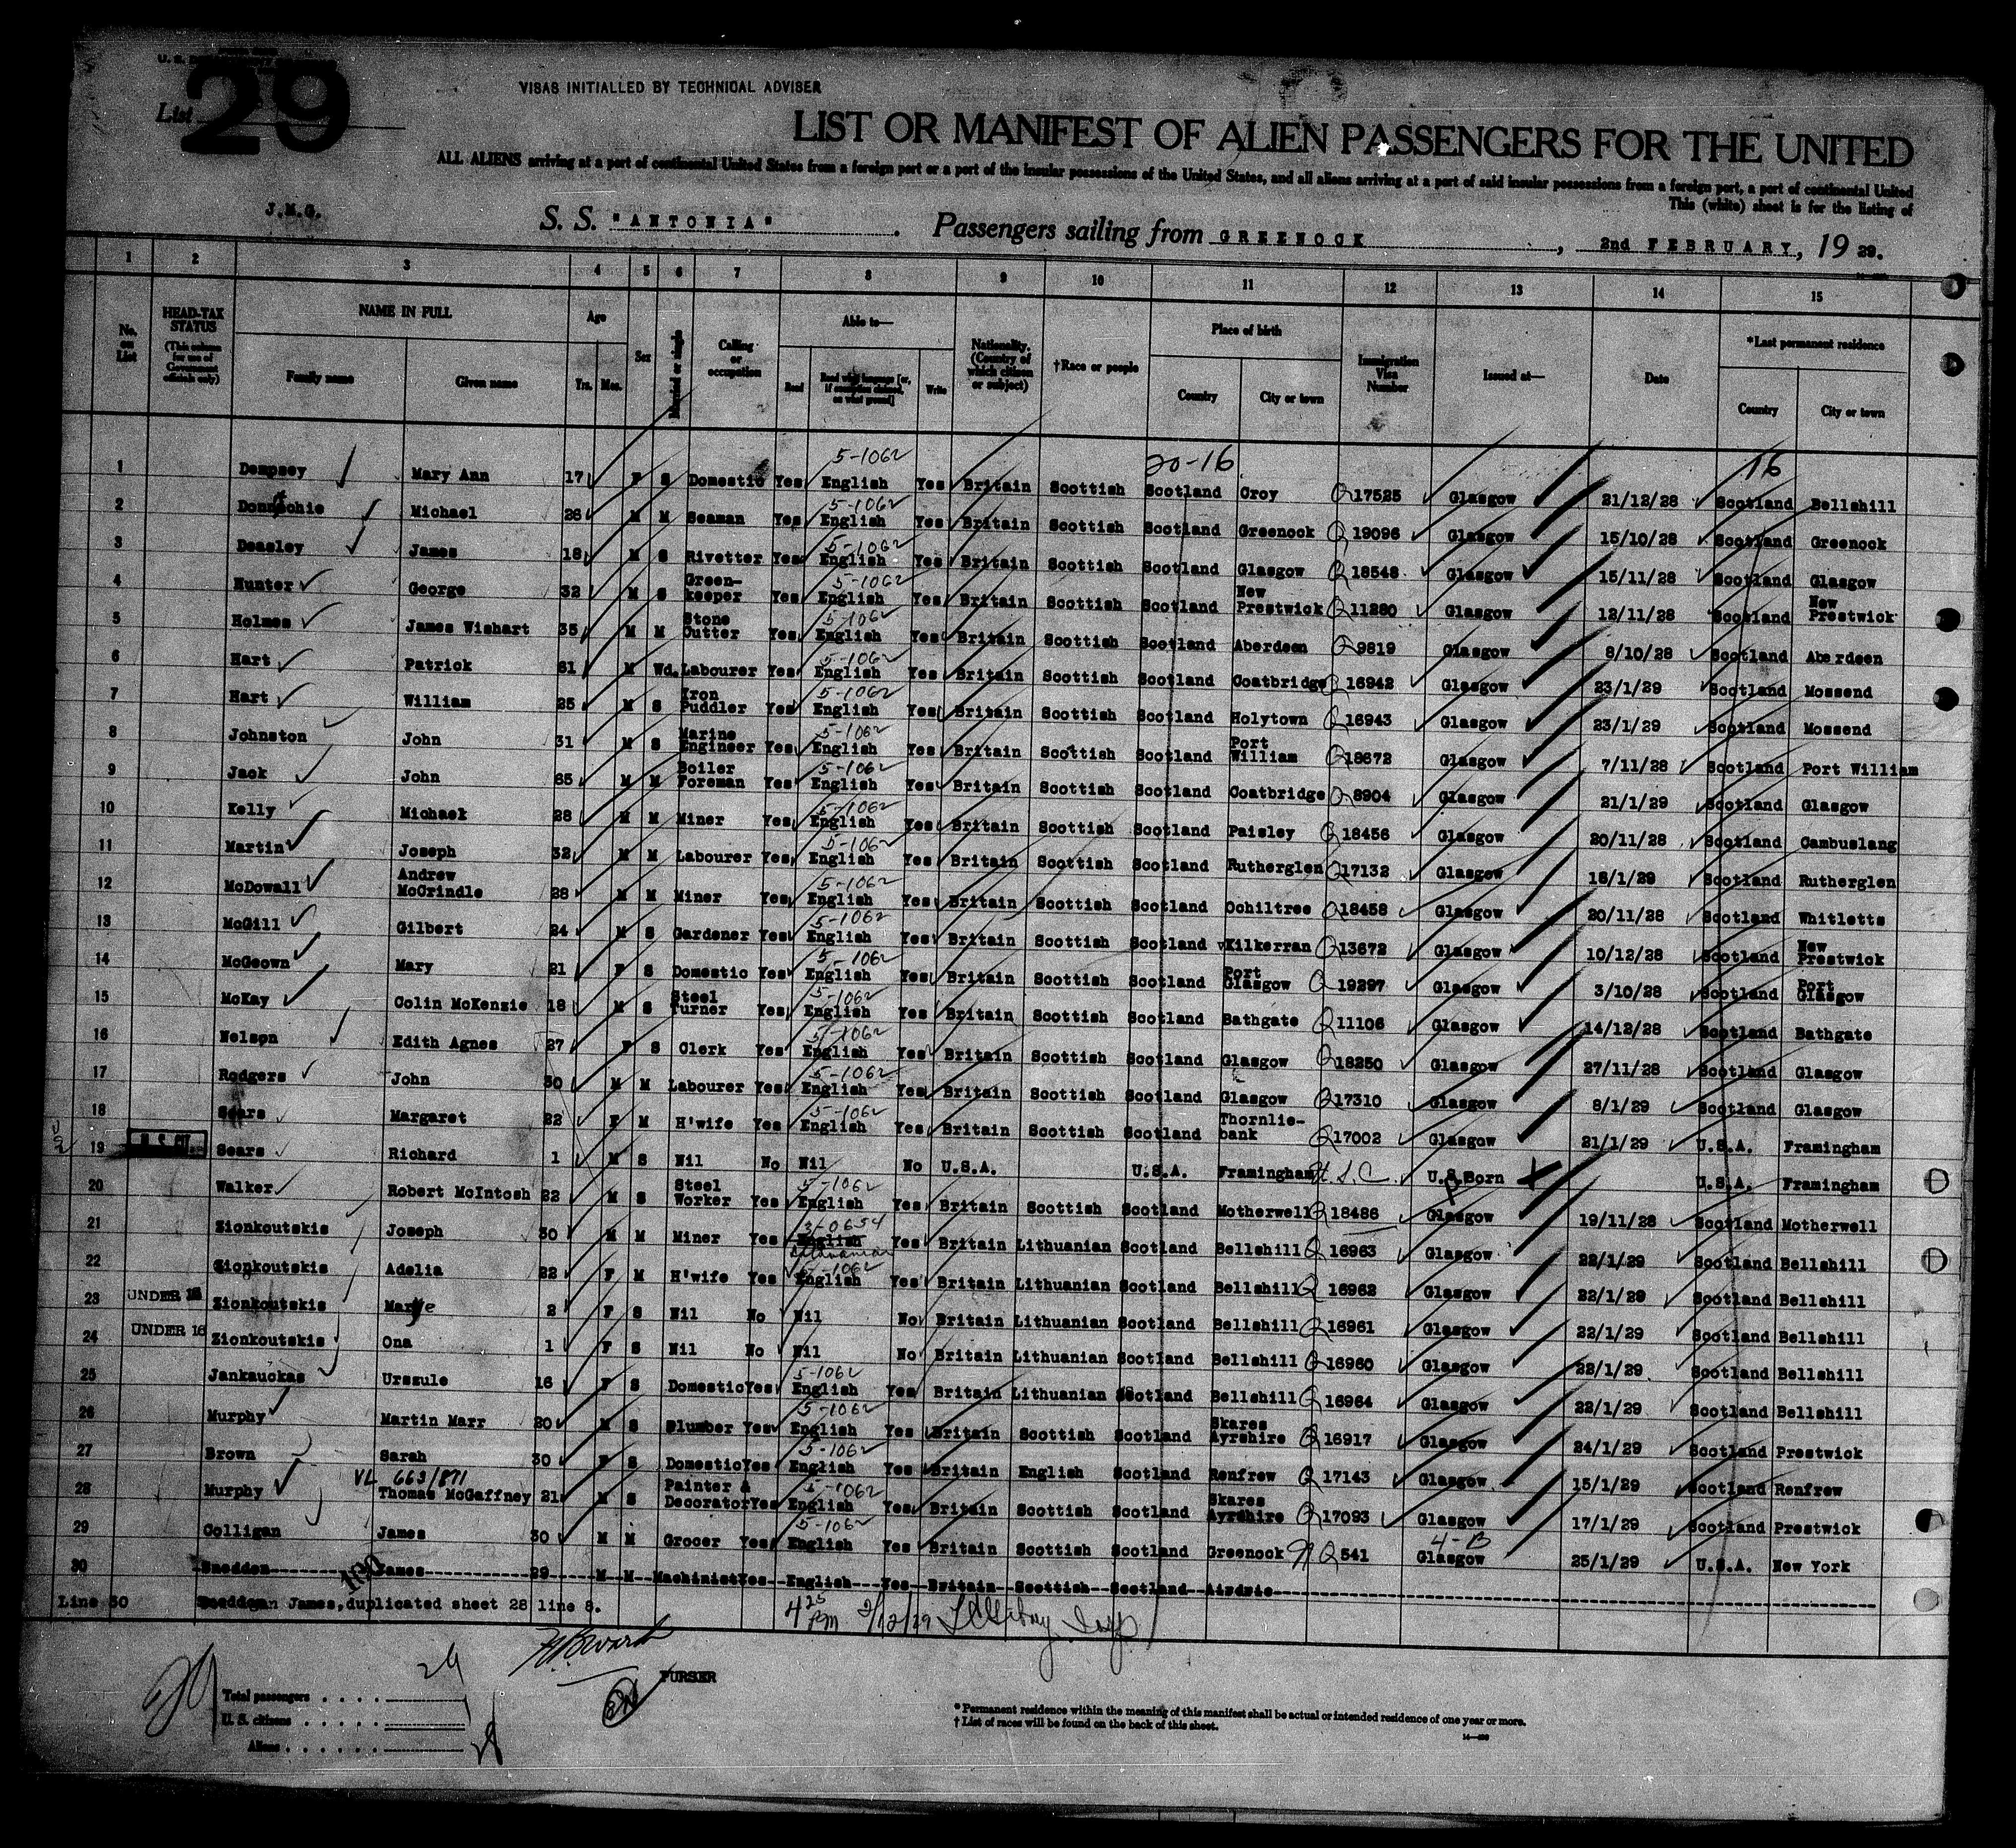 List 29
VISAS INITIALLED BY TECHNICAL ADVISER
LIST OR MANIFEST OF ALIEN PASSENGERS FOR THE UNITED
ALL ALIENS arriving at a port of continental United States from a foreign port or a port of the insular possessions of the United States, and all aliens arriving at a port of said insular possessions from a foreign port, a port of continental United
This (white) sheet is for the listing of
J.M.G.
S. S. "ANTONIA". Passengers sailing from GREENOCK, 2nd FEBRUARY, 19 29.
1 2 3 4 5 6 7 8 9 10 11 12 13 14 15
No. on List
HEAD-TAX STATUS (This column for use of Government officials only)
NAME IN FULL Family name Given name
Age Yrs. Mos.
Sex
Married or single
Calling or occupation
Able to— Read Read what language [or, if exemption claimed, on what ground] Write
Nationality. (Country of which citizen or subject)
†Race or people
Place of birth Country City or town
Immigration Visa Number
Issued at—
Date
*Last permanent residence Country City or town
20-16 16
1 Dempsey Mary Ann 17 F S Domestic Yes 5-1062 English Yes Britain Scottish Scotland Croy Q 17525 Glasgow 21/12/28 Scotland Bellshill
2 Donnachie Michael 26 M M Seaman Yes 5-1062 English Yes Britain Scottish Scotland Greenock Q 19096 Glasgow 15/10/28 Scotland Greenock
3 Deasley James 18 M S Rivetter Yes 5-1062 English Yes Britain Scottish Scotland Glasgow Q 18548 Glasgow 15/11/28 Scotland Glasgow
4 Hunter George 32 M S Green-keeper Yes 5-1062 English Yes Britain Scottish Scotland New Prestwick Q 11280 Glasgow 12/11/28 Scotland New Prestwick
5 Holmes James Wishart 35 M M Stone Cutter Yes 5-1062 English Yes Britain Scottish Scotland Aberdeen Q 9819 Glasgow 8/10/28 Scotland Aberdeen
6 Hart Patrick 61 M Wd. Labourer Yes 5-1062 English Yes Britain Scottish Scotland Coatbridge Q 16942 Glasgow 23/1/29 Scotland Mossend
7 Hart William 25 M S Iron Puddler Yes 5-1062 English Yes Britain Scottish Scotland Holytown Q 16943 Glasgow 23/1/29 Scotland Mossend
8 Johnston John 31 M S Marine Engineer Yes 5-1062 English Yes Britain Scottish Scotland Port William Q 18672 Glasgow 7/11/28 Scotland Port William
9 Jack John 65 M M Boiler Foreman Yes 5-1062 English Yes Britain Scottish Scotland Coatbridge Q 8904 Glasgow 21/1/29 Scotland Glasgow
10 Kelly Michael 28 M M Miner Yes 5-1062 English Yes Britain Scottish Scotland Paisley Q 18456 Glasgow 20/11/28 Scotland Cambuslang
11 Martin Joseph 32 M M Labourer Yes 5-1062 English Yes Britain Scottish Scotland Rutherglen Q 17132 Glasgow 18/1/29 Scotland Rutherglen
12 McDowall Andrew McCrindle 28 M M Miner Yes 5-1062 English Yes Britain Scottish Scotland Ochiltree Q 18458 Glasgow 20/11/28 Scotland Whitletts
13 McGill Gilbert 24 M S Gardener Yes 5-1062 English Yes Britain Scottish Scotland Kilkerran Q 13672 Glasgow 10/12/28 Scotland New Prestwick
14 McGeown Mary 21 F S Domestic Yes 5-1062 English Yes Britain Scottish Scotland Port Glasgow Q 19297 Glasgow 3/10/28 Scotland Port Glasgow
15 McKay Colin McKenzie 18 M S Steel Turner Yes 5-1062 English Yes Britain Scottish Scotland Bathgate Q 11106 Glasgow 14/12/28 Scotland Bathgate
16 Nelson Edith Agnes 27 F S Clerk Yes 5-1062 English Yes Britain Scottish Scotland Glasgow Q 18250 Glasgow 27/11/28 Scotland Glasgow
17 Rodgers John 30 M M Labourer Yes 5-1062 English Yes Britain Scottish Scotland Glasgow Q 17310 Glasgow 8/1/29 Scotland Glasgow
18 Sears Margaret 22 F M H'wife Yes 5-1062 English Yes Britain Scottish Scotland Thornlie-bank Q 17002 Glasgow 21/1/29 U.S.A. Framingham
19 U.S. CIT. Sears Richard 1 M S Nil No Nil No U.S.A. U.S.A. Framingham U.S.C. U.S.Born U.S.A. Framingham
20 Walker Robert McIntosh 22 M S Steel Worker Yes 5-1062 English Yes Britain Scottish Scotland Motherwell Q 18486 Glasgow 19/11/28 Scotland Motherwell
21 Zionkoutskis Joseph 30 M M Miner Yes 3-0654 English Lithuanian Yes Britain Lithuanian Scotland Bellshill Q 16963 Glasgow 22/1/29 Scotland Bellshill
22 Zionkoutskis Adelia 22 F M H'wife Yes 5-1062 English Yes Britain Lithuanian Scotland Bellshill Q 16962 Glasgow 22/1/29 Scotland Bellshill
23 UNDER 16 Zionkoutskis Marye 2 F S Nil No Nil No Britain Lithuanian Scotland Bellshill Q 16961 Glasgow 22/1/29 Scotland Bellshill
24 UNDER 16 Zionkoutskis Ona 1 F S Nil No Nil No Britain Lithuanian Scotland Bellshill Q 16960 Glasgow 22/1/29 Scotland Bellshill
25 Jankauckas Urszule 16 F S Domestic Yes 5-1062 English Yes Britain Lithuanian Scotland Bellshill Q 16964 Glasgow 22/1/29 Scotland Bellshill
26 Murphy Martin Marr 20 M S Plumber Yes 5-1062 English Yes Britain Scottish Scotland Skares Ayrshire Q 16917 Glasgow 24/1/29 Scotland Prestwick
27 Brown Sarah 30 F S Domestic Yes 5-1062 English Yes Britain English Scotland Renfrew Q 17143 Glasgow 15/1/29 Scotland Renfrew
VL 663/871
28 Murphy Thomas McGaffney 21 M S Painter & Decorator Yes 5-1062 English Yes Britain Scottish Scotland Skares Ayrshire Q 17093 Glasgow 17/1/29 Scotland Prestwick
29 Colligan James 30 M M Grocer Yes 5-1062 English Yes Britain Scottish Scotland Greenock Q 541 4-B Glasgow 25/1/29 U.S.A. New York
30 Sneddon James 29 M M Machinist Yes English Yes Britain Scottish Scotland Airdrie
Line 30 Sneddon James, duplicated sheet 28 line 8.
4 25 PM 2/12/29
PURSER
Total passengers
U. S. citizens
Aliens
* Permanent residence within the meaning of this manifest shall be actual or intended residence of one year or more.
† List of races will be found on the back of this sheet.